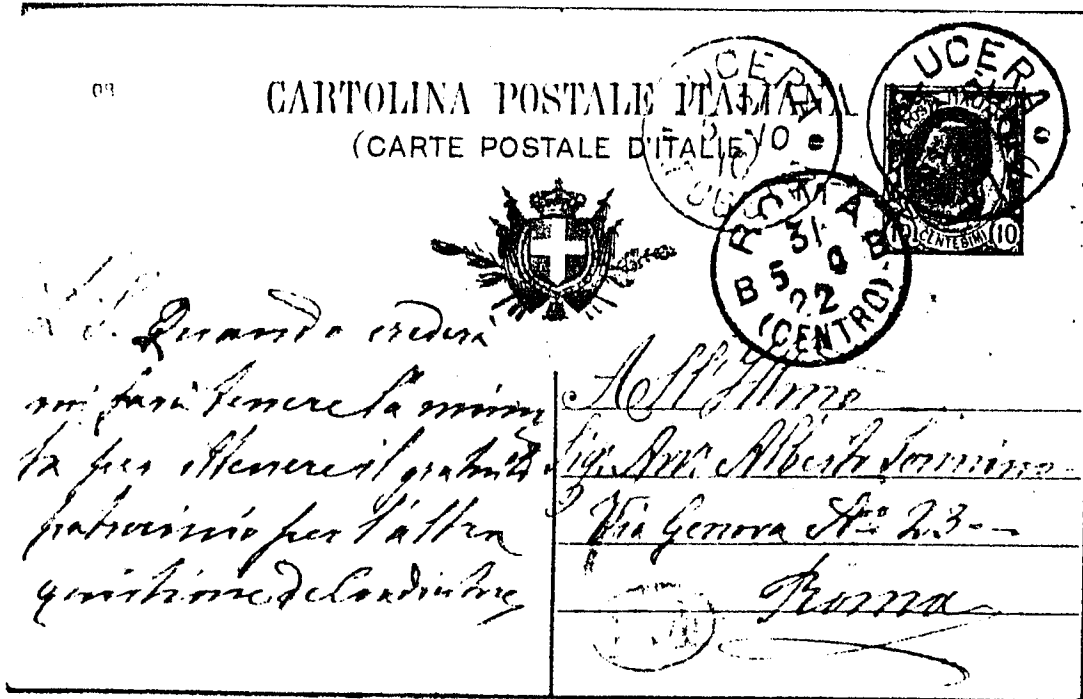 09
CARTOLINA POSTALE ITALIANA
(CARTE POSTALE D'ITALIE)
LUCERA
LUCERA
10 CENTESIMI 10
ROMA
31
5
02
B (CENTRO) B
Quando crederà
mi farà tenere la minu
ta per ottenere il gratuito
patrocinio per l'altra
quistione
All'Illmo
Sig. Avv. Alberto Sonnino
Via Genova No 23
Roma